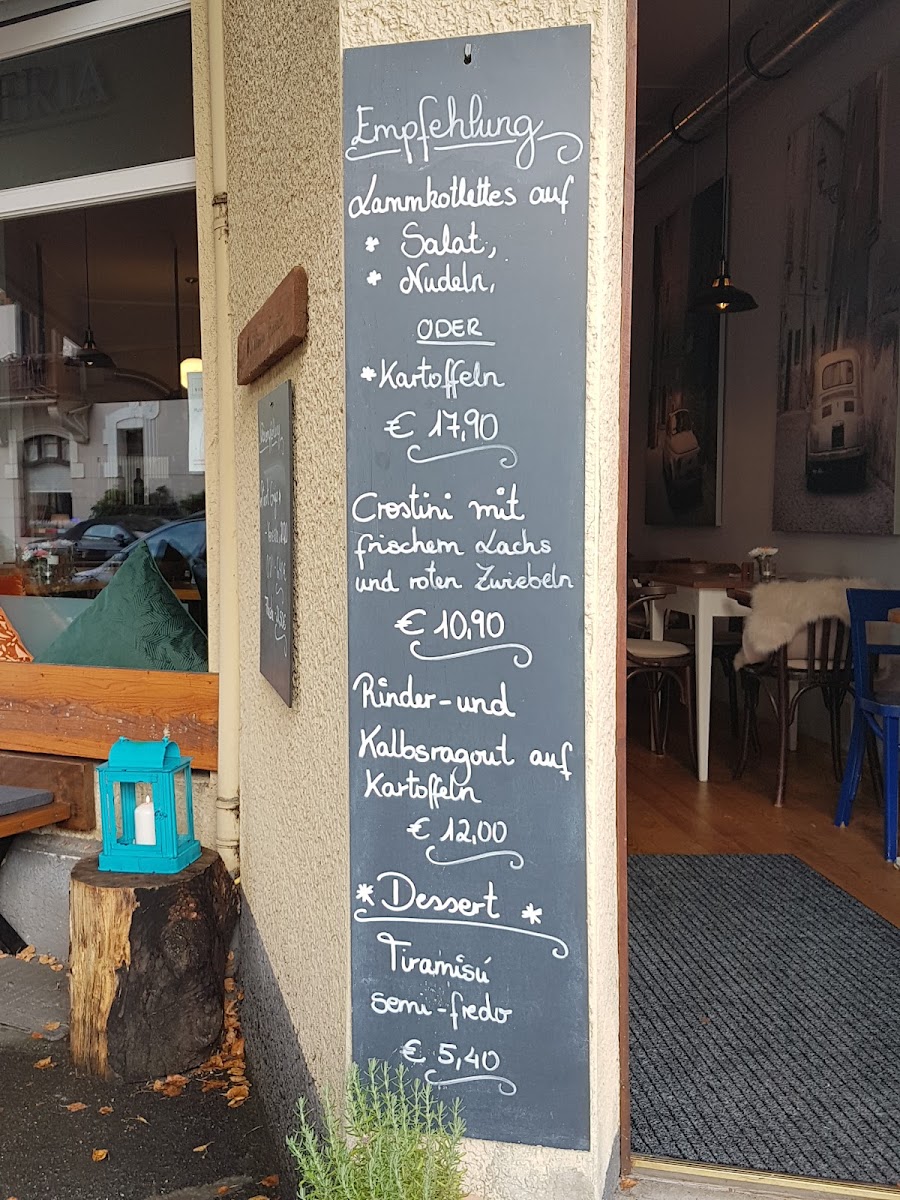 ERIA
Empfehlung
Lammkotlettes auf
* Salat,
* Nudeln,
ODER
* Kartoffeln
€ 17,90
Crostini mit
frischem Lachs
und roten Zwiebeln
€ 10,90
Rinder-und
Kalbsragout auf
Kartoffeln
€ 12,00
* Dessert *
Tiramisú
semi-fredo
€ 5,40